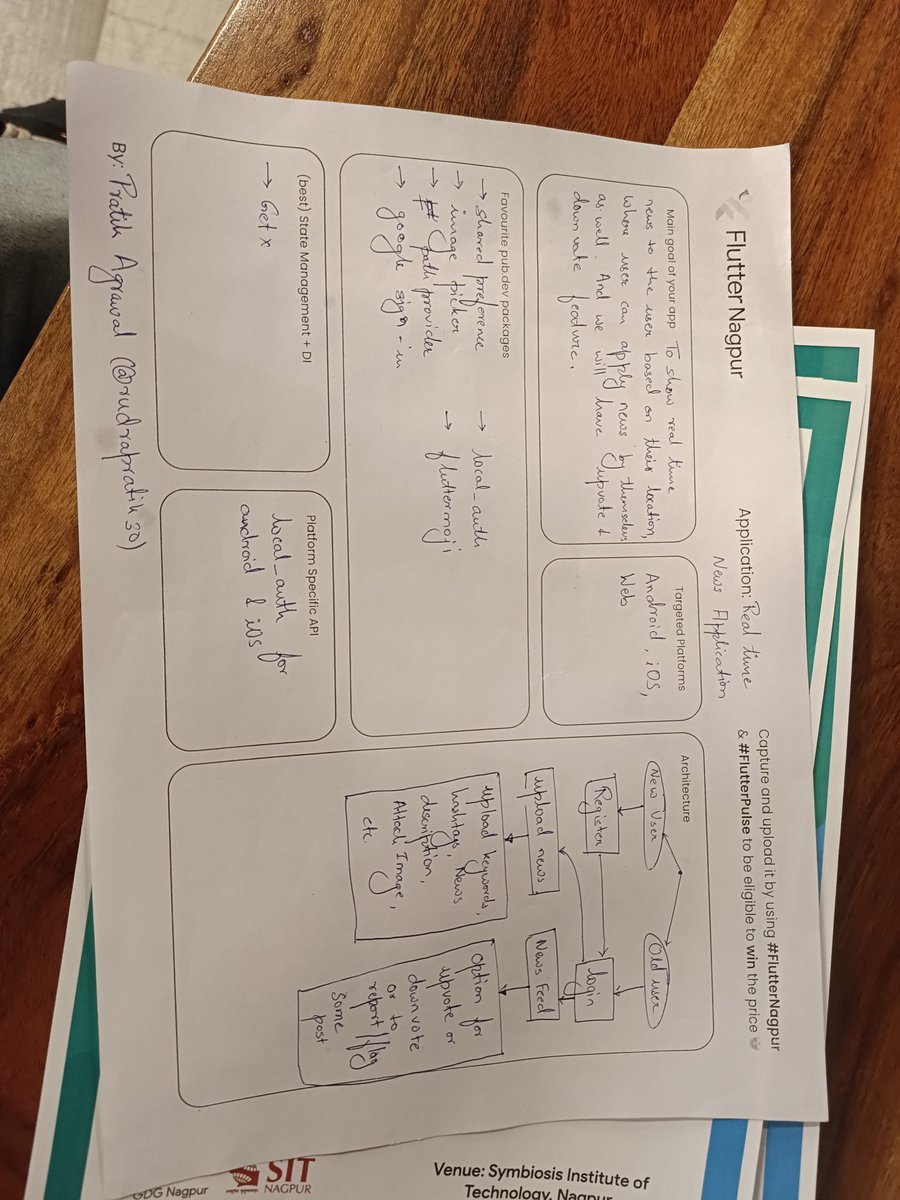 Flutter Nagpur
Application: Real time
News Application
Capture and upload it by using #FlutterNagpur
& #FlutterPulse to be eligible to win the price
Main goal of your app To show real time
news to the user based on their location,
where user can apply news by themselves
as well. And we will have upvote &
downvote feature.
Targeted Platforms
Android, iOS,
Web
Favourite pub.dev packages
→ shared preference
→ image picker
→ path provider
→ google sign-in
→ local_auth
→ fluttermoji
(best) State Management + DI
→ Getx
Platform Specific API
local_auth for
android & iOS
Architecture
New User
Old user
Register
login
upload news
News Feed
upload keywords,
hashtags, News
description,
Attach Image,
etc.
option for
upvote or
downvote
or to
report/flag
some
post
By: Pratik Agrawal (@rudrapratik30)
GDG Nagpur
SIT
NAGPUR
Venue: Symbiosis Institute of
Technology, Nagpur